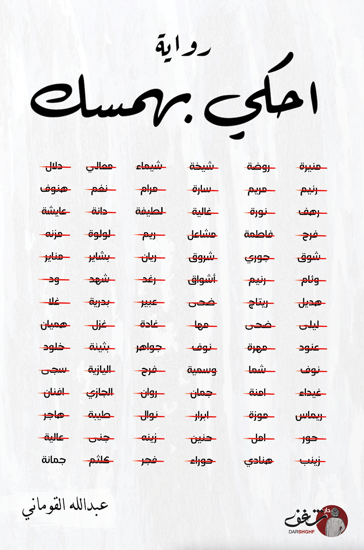 رواية
احكي بهمسك
منيرة روضة شيخة شيماء معالي دلال
رنيم مريم سارة مرام نغم هنوف
رهف نورة غالية لطيفة دانة عايشة
فرح فاطمة مشاعل ريم لولوة مزنه
شوق جوري شروق ريان بشاير مناير
وئام رنيم أشواق رغد شهد ود
هديل ريتاج ضحى عبير بدرية غلا
ليلى ضحى مها غادة غزل هميان
عنود مهرة نوف جواهر بثينة خلود
نوف شما وسمية فرح اليازية سجى
غيداء امنة جمان روان الجازي افنان
ريماس موزة ابرار نوال طيبة هاجر
حور امل حنين زينه جنى عالية
زينب هنادي حوراء فجر كلثم جمانة
عبدالله القوماني
DARSHGHF